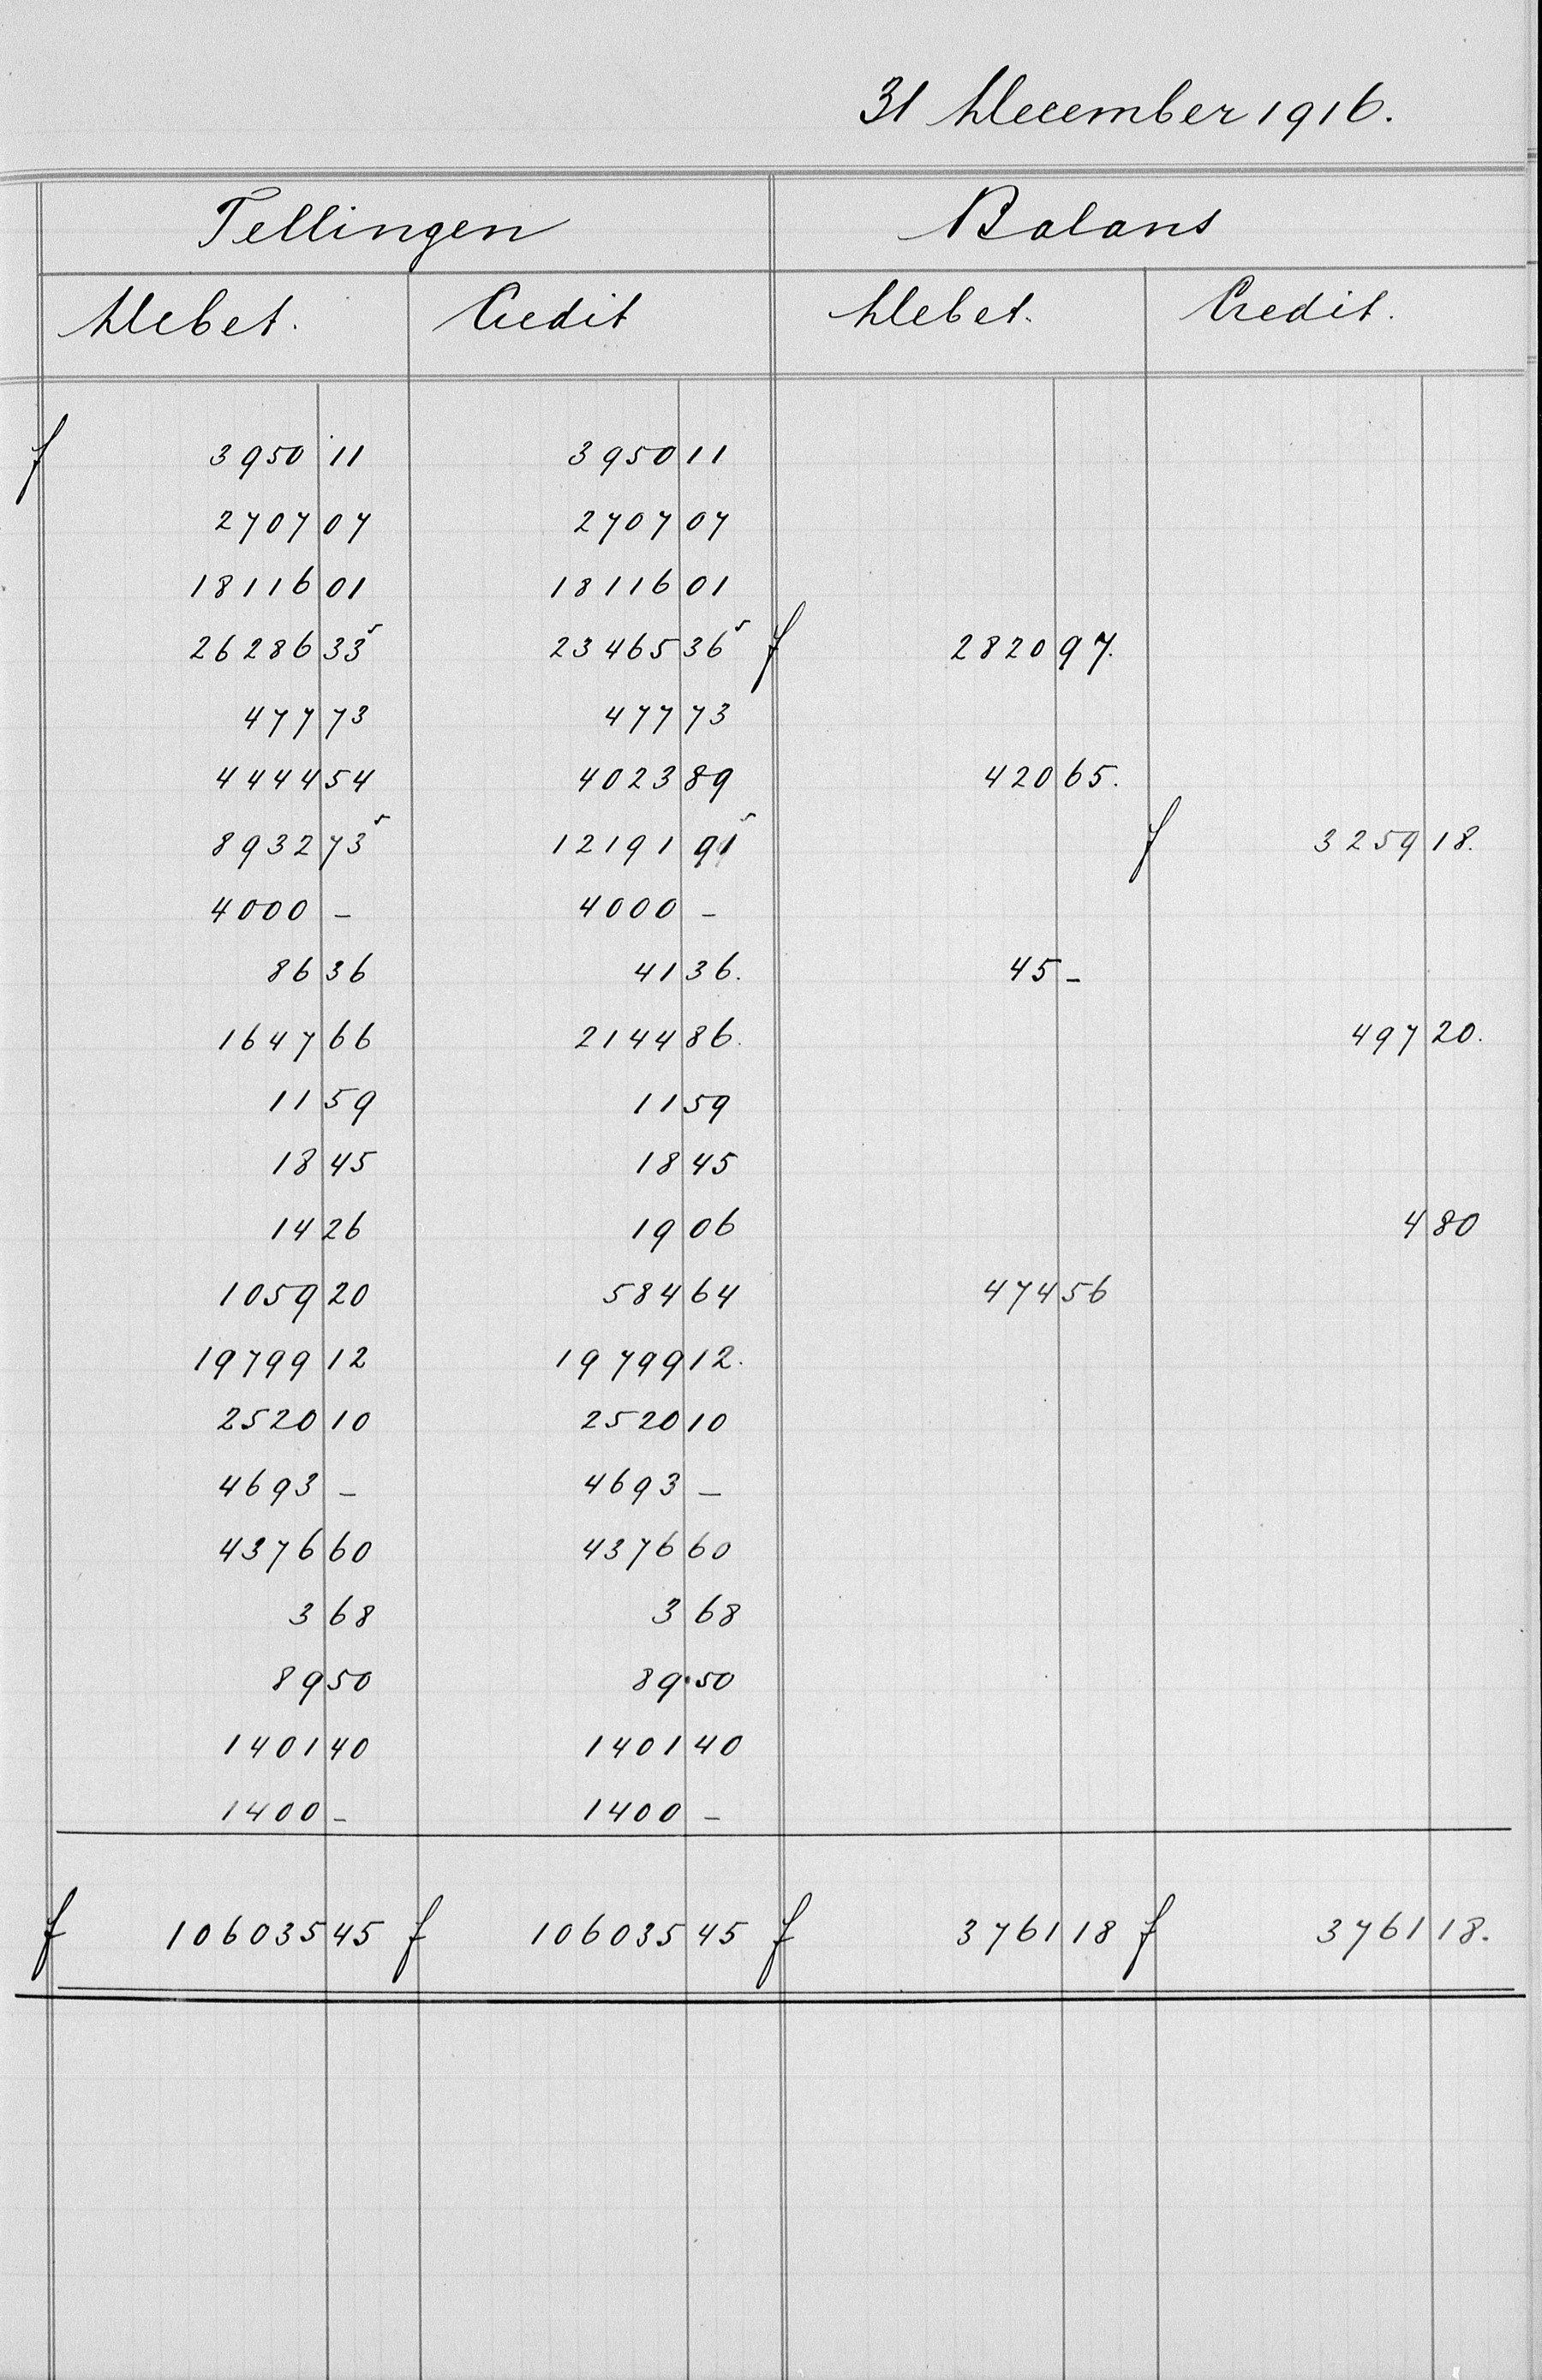 31 December 1916.
Tellingen Balans
Debet. Credit Debet. Credit.
f 3950 11 3950 11
2707 07 2707 07
18116 01 18116 01
26286 33⁵ 23465 36⁵ f 2820 97.
477 73 477 73
4444 54 4023 89 420 65.
8932 73⁵ 12191 91⁵ f 3259 18.
4000 – 4000 –
86 36 41 36. 45 –
1647 66 2144 86. 497 20.
11 59 11 59
18 45 18 45
14 26 19 06 4 80
1059 20 584 64 474 56
19799 12 19799 12.
2520 10 2520 10
4693 – 4693 –
4376 60 4376 60
3 68 3 68
89 50 89 50
1401 40 1401 40
1400 – 1400 –
f 106035 45 f 106035 45 f 3761 18 f 3761 18.